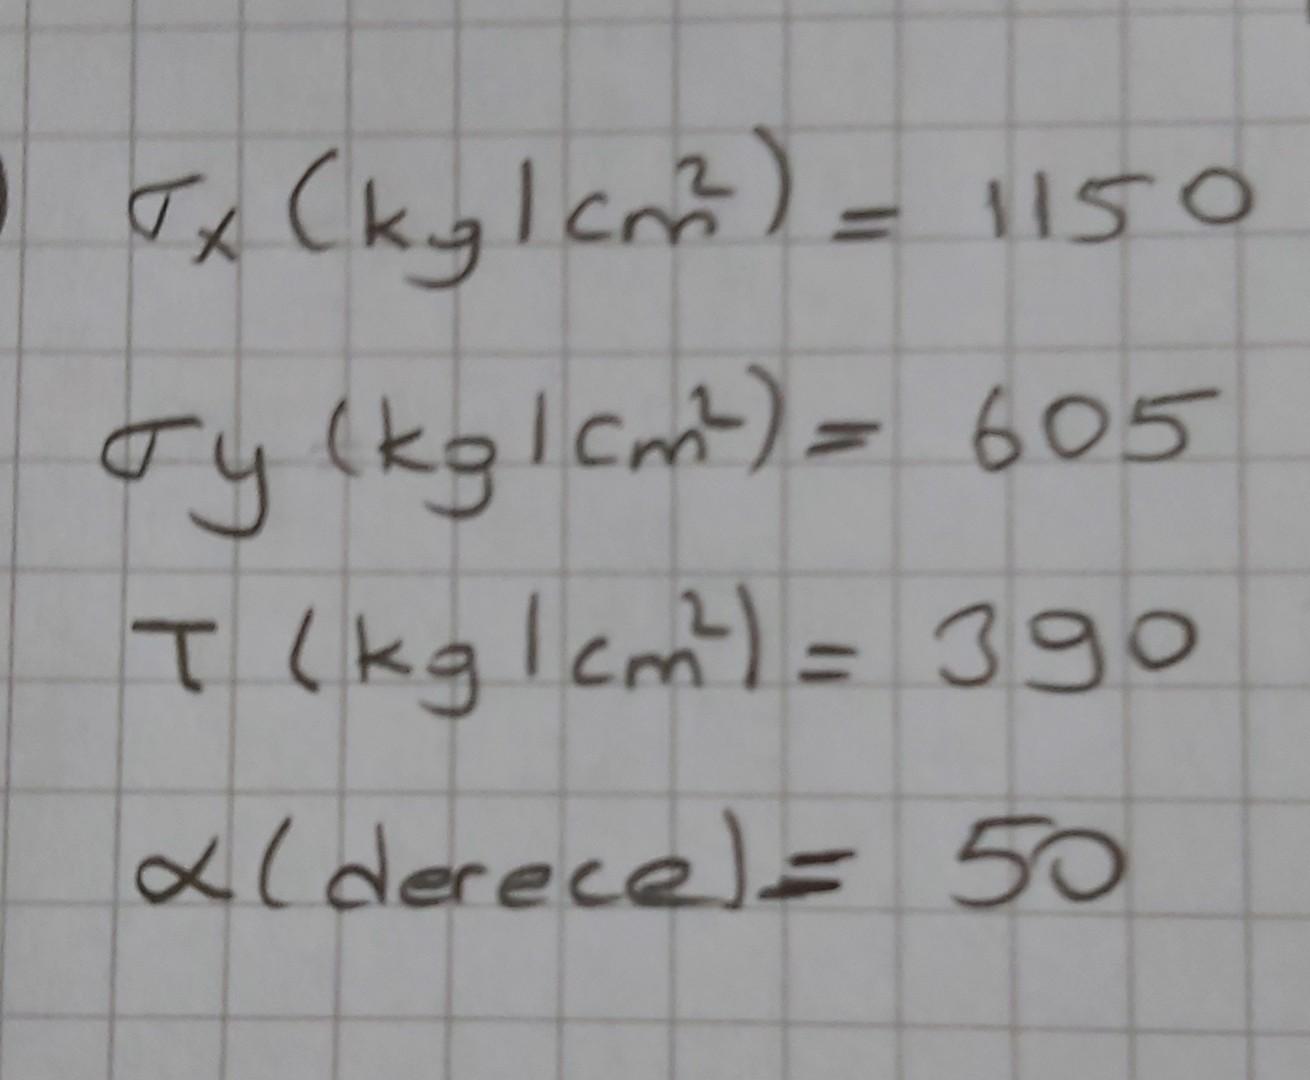 σx (kg/cm²) = 1150
σy (kg/cm²) = 605
τ (kg/cm²) = 390
α (derece) = 50